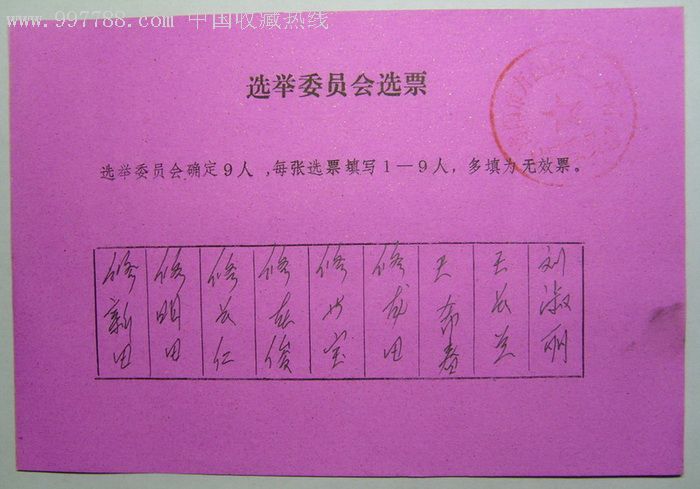 www.997788.com 中国收藏热线
选举委员会选票
选举委员会确定9人,每张选票填写1—9人，多填为无效票。
修新田
修明田
修长仁
修成田
王长兰
刘淑丽